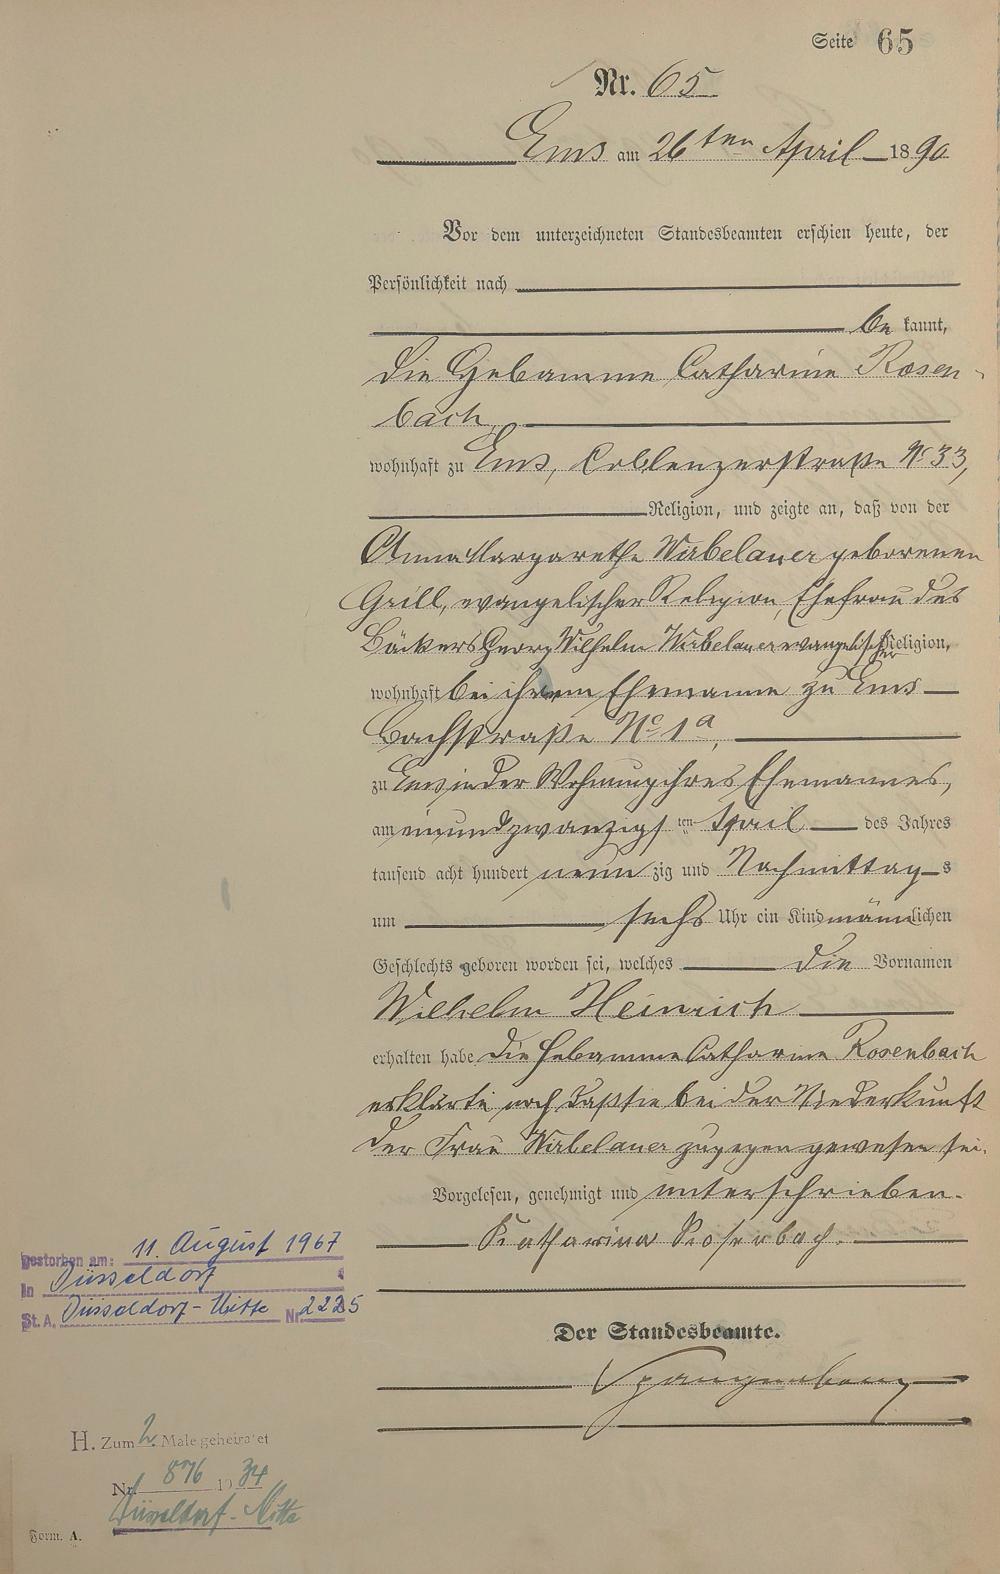 Seite 65
Nr. 65
Ems am 26ten April 1890
Vor dem unterzeichneten Standesbeamten erschien heute, der
Persönlichkeit nach
be kannt,
die Hebamme Catharine Rosen-
bach,
wohnhaft zu Ems, Coblenzerstraße No 33,
Religion, und zeigte an, daß von der
Anna Margarethe Wirbelauer geborenen
Grill, evangelischer Religion, Ehefrau des
Bäckers Georg Wilhelm Wirbelauer evangelischer Religion,
wohnhaft bei ihrem Ehemanne zu Ems
Bachstraße No 1a,
zu Ems in der Wohnung ihres Ehemannes,
am einundzwanzigsten April des Jahres
tausend acht hundert neun zig und Nachmittags
um sechs Uhr ein Kind männlichen
Geschlechts geboren worden sei, welches die Vornamen
Wilhelm Heinrich
erhalten habe die Hebamme Catharine Rosenbach
erklärte noch daß sie bei der Niederkunft
der Frau Wirbelauer zugegen gewesen sei.
Vorgelesen, genehmigt und unterschrieben.
Katharina Rosenbach.
Der Standesbeamte.
Spangenberg
gestorben am: 11. August 1967
in Düsseldorf
St. A. Düsseldorf-Mitte Nr. 2225
H. Zum 2. Male geheiratet
Nr. 876 1934
Düsseldorf-Mitte
Form. A.